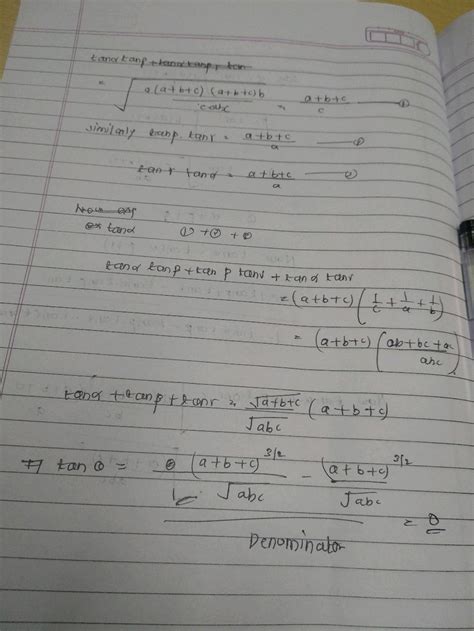 tanα tanp + tanα tanp, tan
= √(a(a+b+c)(a+b+c)b / cabc) = (a+b+c)/c — ①
similarly tanp tanr = (a+b+c)/a — ②
tanr tanα = (a+b+c)/a — ③
Now
tanα ① + ② + ③
tanα tanp + tan p tanr + tanα tanr
= (a+b+c) (1/c + 1/a + 1/b)
= (a+b+c) (ab+bc+a / abc)
tanα + tanp + tanr = √a+b+c / √abc (a+b+c)
⇒ tan θ = (a+b+c)^3/2 / √abc − (a+b+c)^3/2 / √abc
= 0
Denominator